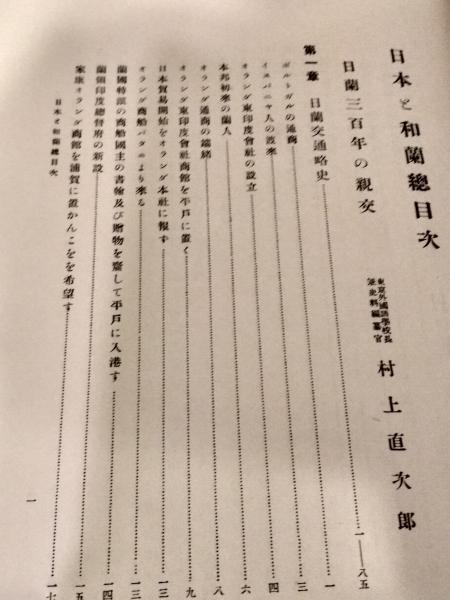 日本と和蘭總目次
日蘭三百年の親交
東京外國語學校長
兼史料編纂官
村上直次郎
一——八五
第一章 日蘭交通略史 一
ポルトガルの通商 三
イスパニヤ人の渡來 四
オランダ東印度會社の設立 六
本邦初來の蘭人 八
オランダ通商の端緒 九
オランダ東印度會社商館を平戸に置く 一三
日本貿易開始をオランダ本社に報ず 一三
オランダ商船パタニより來る 一四
蘭國特派の商船國主の書翰及び贈物を齎して平戸に入港す 一四
蘭領印度總督府の新設 一五
家康オランダ商館を浦賀に置かんことを希望す 一七
日本と和蘭總目次
一